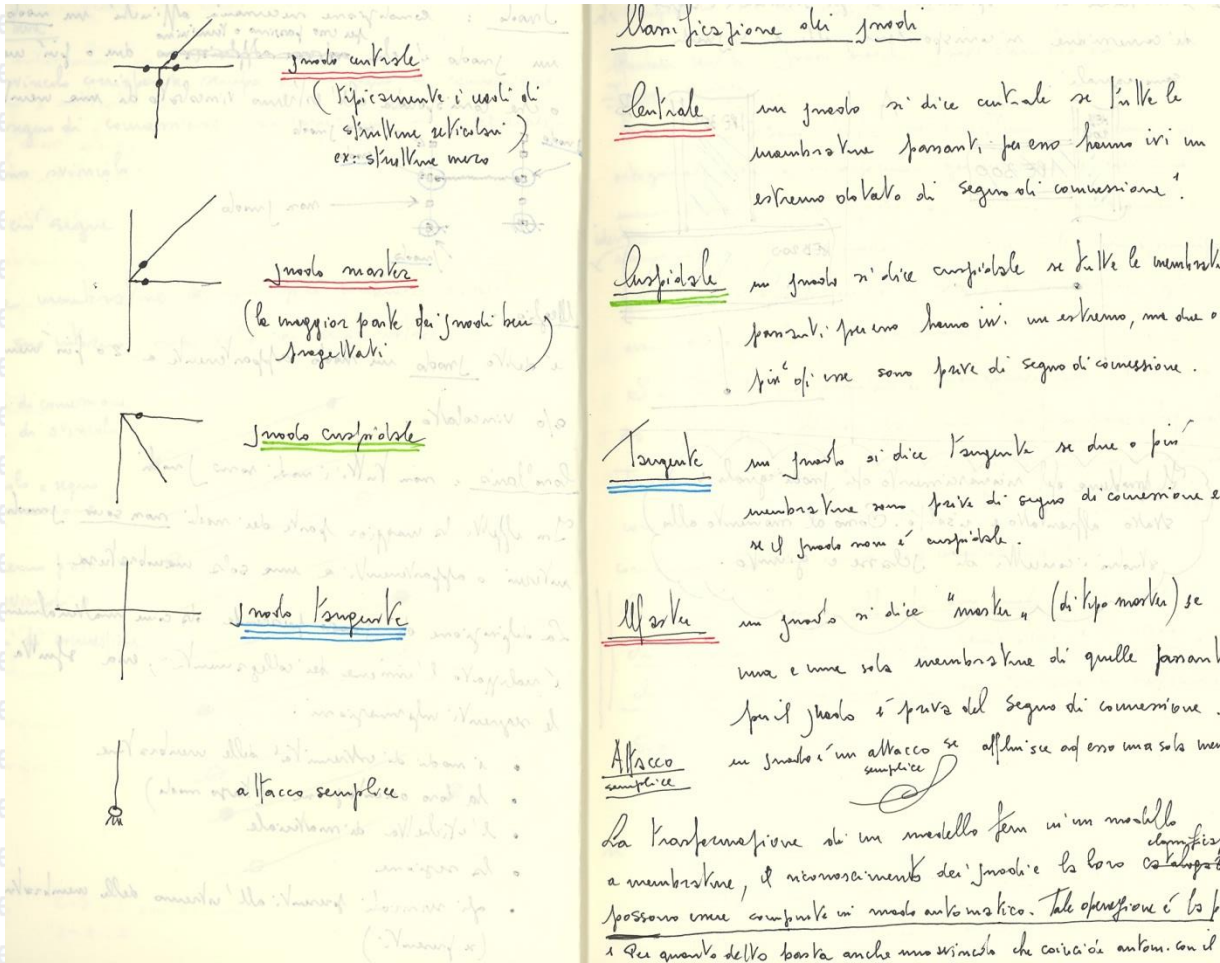 Jnodo centrale
(tipicamente i nodi di
strutture reticolari)
ex: strutture mero
Jnodo master
(la maggior parte dei Jnodi ben
progettati)
Jnodo cuspidale
Jnodo tangente
attacco semplice
Classificazione dei Jnodi
Centrale un Jnodo si dice centrale se tutte le
membrature passanti per esso hanno ivi un
estremo dotato di segno di connessione¹.
Cuspidale un Jnodo si dice cuspidale se tutte le membrat
passanti per esso hanno ivi un estremo, ma due o
più di esse sono prive di segno di connessione.
Tangente un Jnodo si dice tangente se due o più
membrature sono prive di segno di connessione e
se il Jnodo non è cuspidale.
Master un Jnodo si dice "master" (di tipo master) se
una e una sola membratura di quelle passant
per il Jnodo è priva del segno di connessione.
Attacco semplice un Jnodo è un attacco semplice se affluisce ad esso una sola mem
La trasformazione di un modello fem in un modello
a membrature, il riconoscimento dei Jnodi e la loro
possono essere compiute in modo automatico. Tale operazione è la p
1 Per quanto detto basta anche uno svincolo che coincide autom. con il